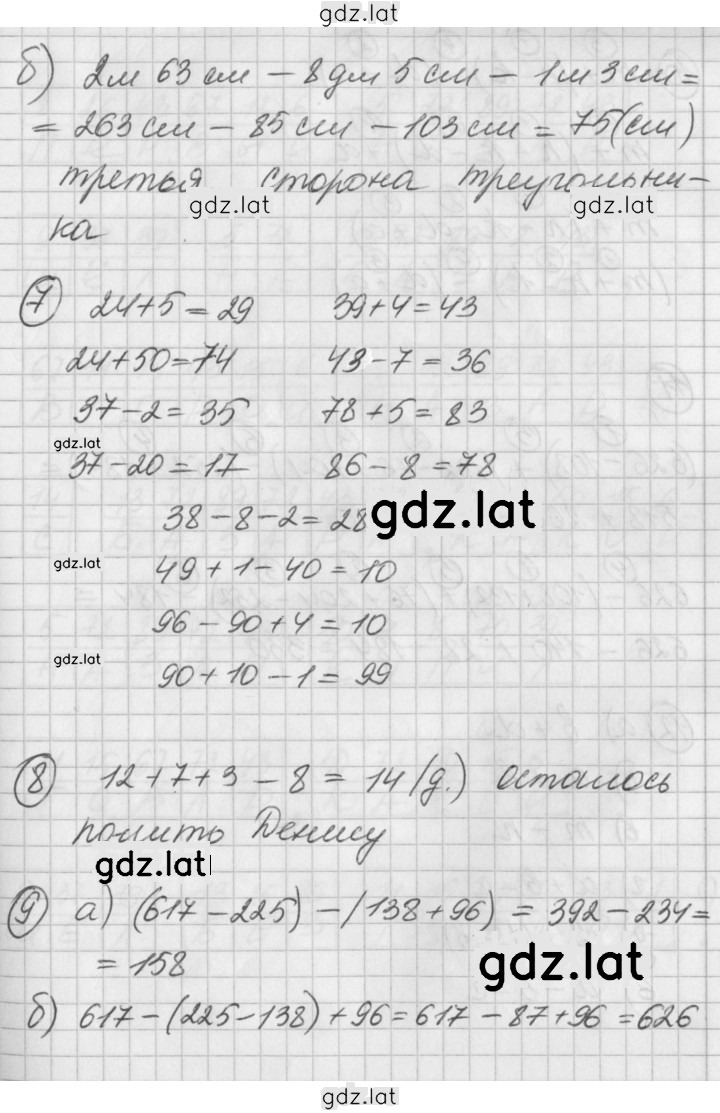 gdz.lat
б) 2м 63 см - 8 дм 5 см - 1м 3 см =
= 263 см - 85 см - 103 см = 75 (см)
третья сторона треугольни-
gdz.lat gdz.lat
ка
7 24+5=29 39+4=43
24+50=74 43-7=36
37-2=35 78+5=83
gdz.lat
37-20=17 86-8=78
38-8-2=28
gdz.lat
gdz.lat
49+1-40=10
96-90+4=10
gdz.lat
90+10-1=99
8 12+7+3-8=14 (д.) осталось
полить Денису
gdz.lat
9 а) (617-225)-(138+96)=392-234=
=158
gdz.lat
б) 617-(225-138)+96=617-87+96=626
gdz.lat